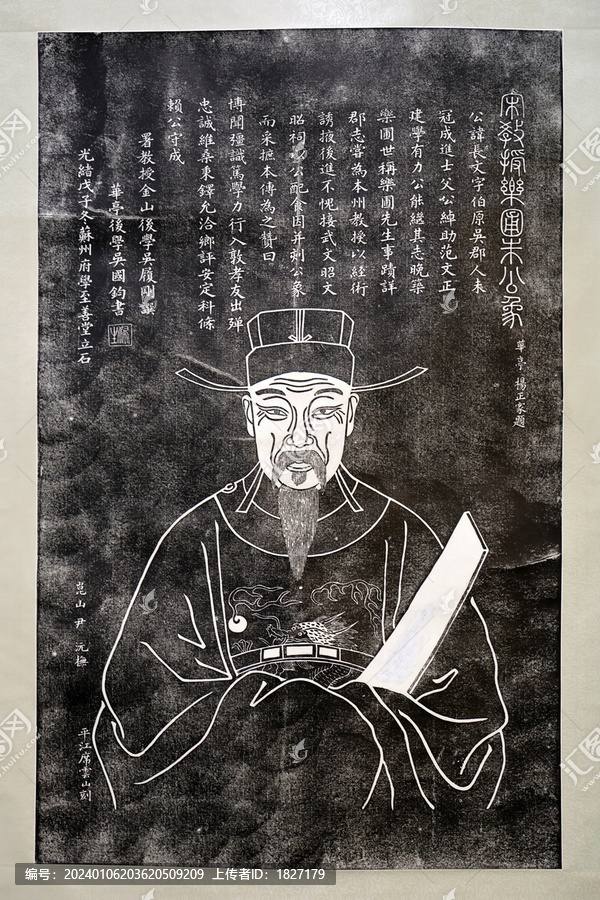 宋教授樂圃朱公象
華亭楊正家題
公諱長文字伯原吳郡人未
冠成進士父公綽助范文正
建學有力公能繼其志晚築
樂圃世稱樂圃先生事蹟詳
郡志嘗為本州教授以經術
誘掖後進不愧接武文昭文
昭祠公配食因并刺公象
而采摭本傳為之贊曰
博聞彊識篤學力行入敦孝友出殫
忠誠維桑秉鐸允洽鄉評安定科條
賴公守成
署教授金山後學吳履剛譔
華亭後學吳國鈞書
光緒戊子冬蘇州府學至善堂立石
崑山尹沅撫
平江席雲山刻
编号：20240106203620509209 上传者ID：1827179